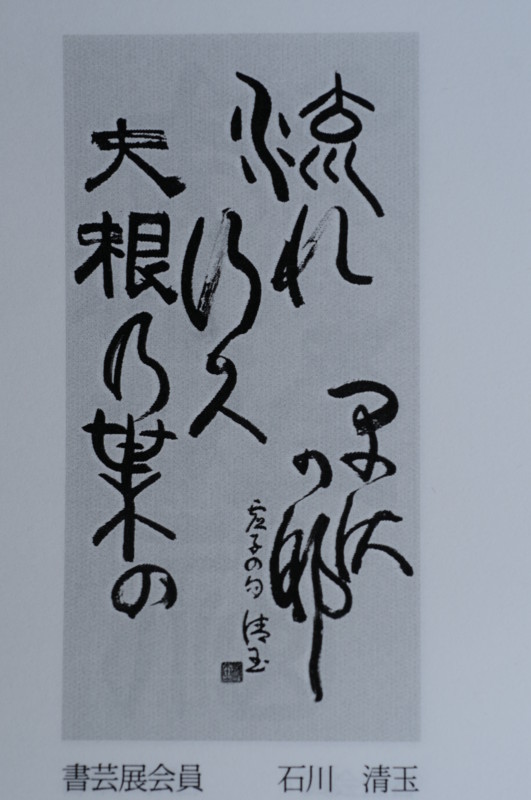 流れ
行久
大根乃葉の
早さ
か那
虚子の句 清玉
書芸展会員 石川 清玉